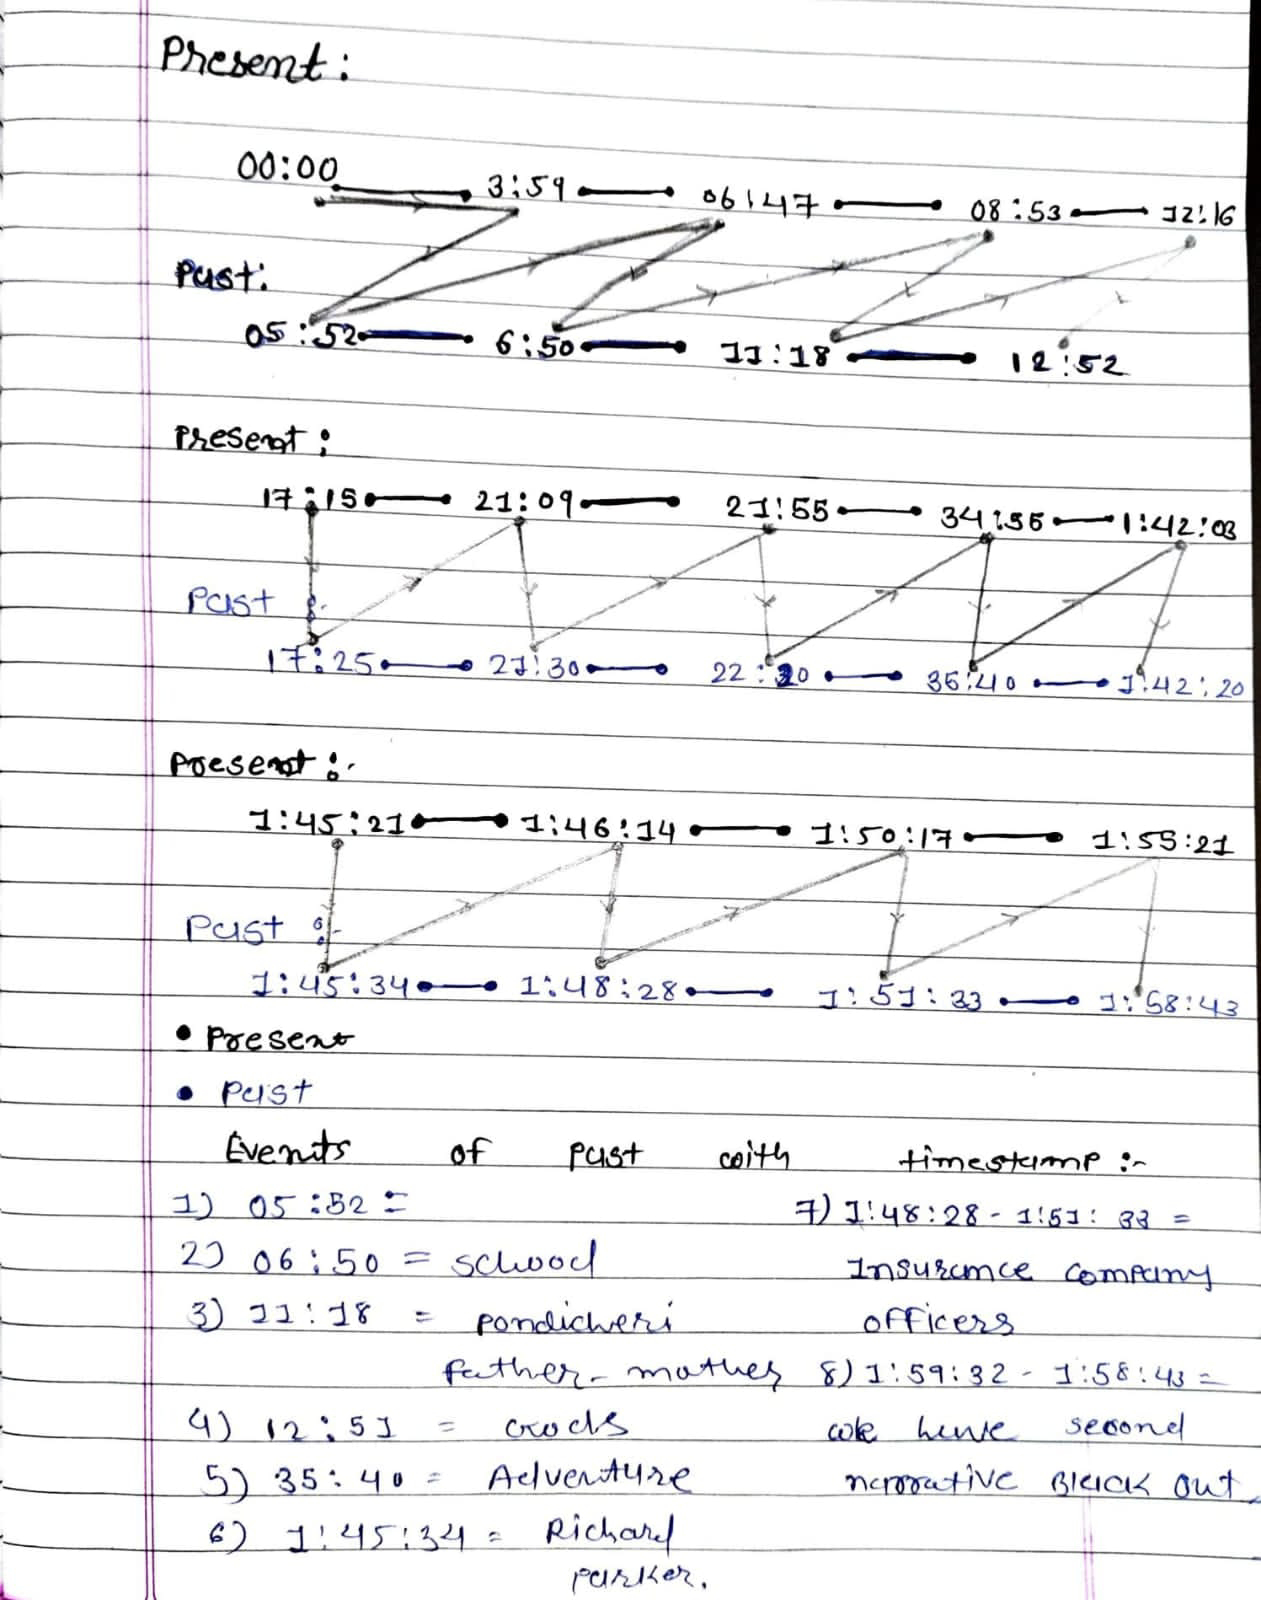 Present:
00:00 3:59 06:47 08:53 12:16
Past:
05:52 6:50 11:18 12:52
Present:
17:15 21:09 21:55 34:56 1:42:03
Past :-
17:25 21:30 22:20 35:40 1:42:20
Present :-
1:45:21 1:46:14 1:50:17 1:55:21
Past :-
1:45:34 1:48:28 1:51:33 1:58:43
• Present
• Past
Events of past with timestamp :-
1) 05:52 =
2) 06:50 = school
3) 11:18 = pondicheri
father-mother
4) 12:51 = Gods
5) 35:40 = Adventure
6) 1:45:34 = Richard
parker.
7) 1:48:28 - 1:51:33 =
Insurance company
officers
8) 1:59:32 - 1:58:43 =
we have second
narrative Black out